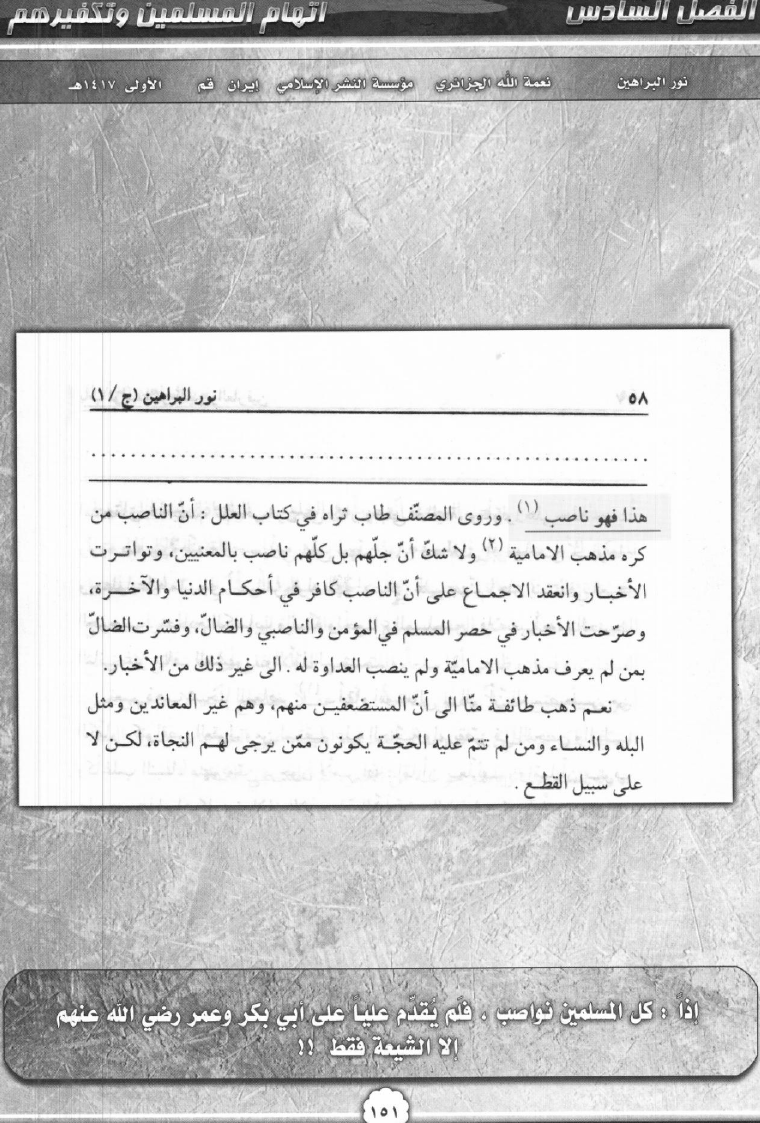 الفصل السادس اتهام المسلمين وتكفيرهم
نور البراهين نعمة الله الجزائري مؤسسة النشر الإسلامي إيران قم الأولى ١٤١٧هـ
٥٨ نور البراهين (ج / ١)
هذا فهو ناصب (١) . وروى المصنّف طاب ثراه في كتاب العلل : أنّ الناصب من
كره مذهب الامامية (٢) ولا شكّ أنّ جلّهم بل كلّهم ناصب بالمعنيين، وتواترت
الأخبار وانعقد الاجماع على أنّ الناصب كافر في أحكام الدنيا والآخرة،
وصرّحت الأخبار في حصر المسلم في المؤمن والناصبي والضالّ، وفسّرت الضالّ
بمن لم يعرف مذهب الاماميّة ولم ينصب العداوة له . الى غير ذلك من الأخبار.
نعم ذهب طائفة منّا الى أنّ المستضعفين منهم، وهم غير المعاندين ومثل
البله والنساء ومن لم تتمّ عليه الحجّة يكونون ممّن يرجى لهم النجاة، لكن لا
على سبيل القطع .
إذاً : كل المسلمين نواصب . فلم يُقدّم علياً على أبي بكر وعمر رضي الله عنهم
إلا الشيعة فقط !!
١٥١